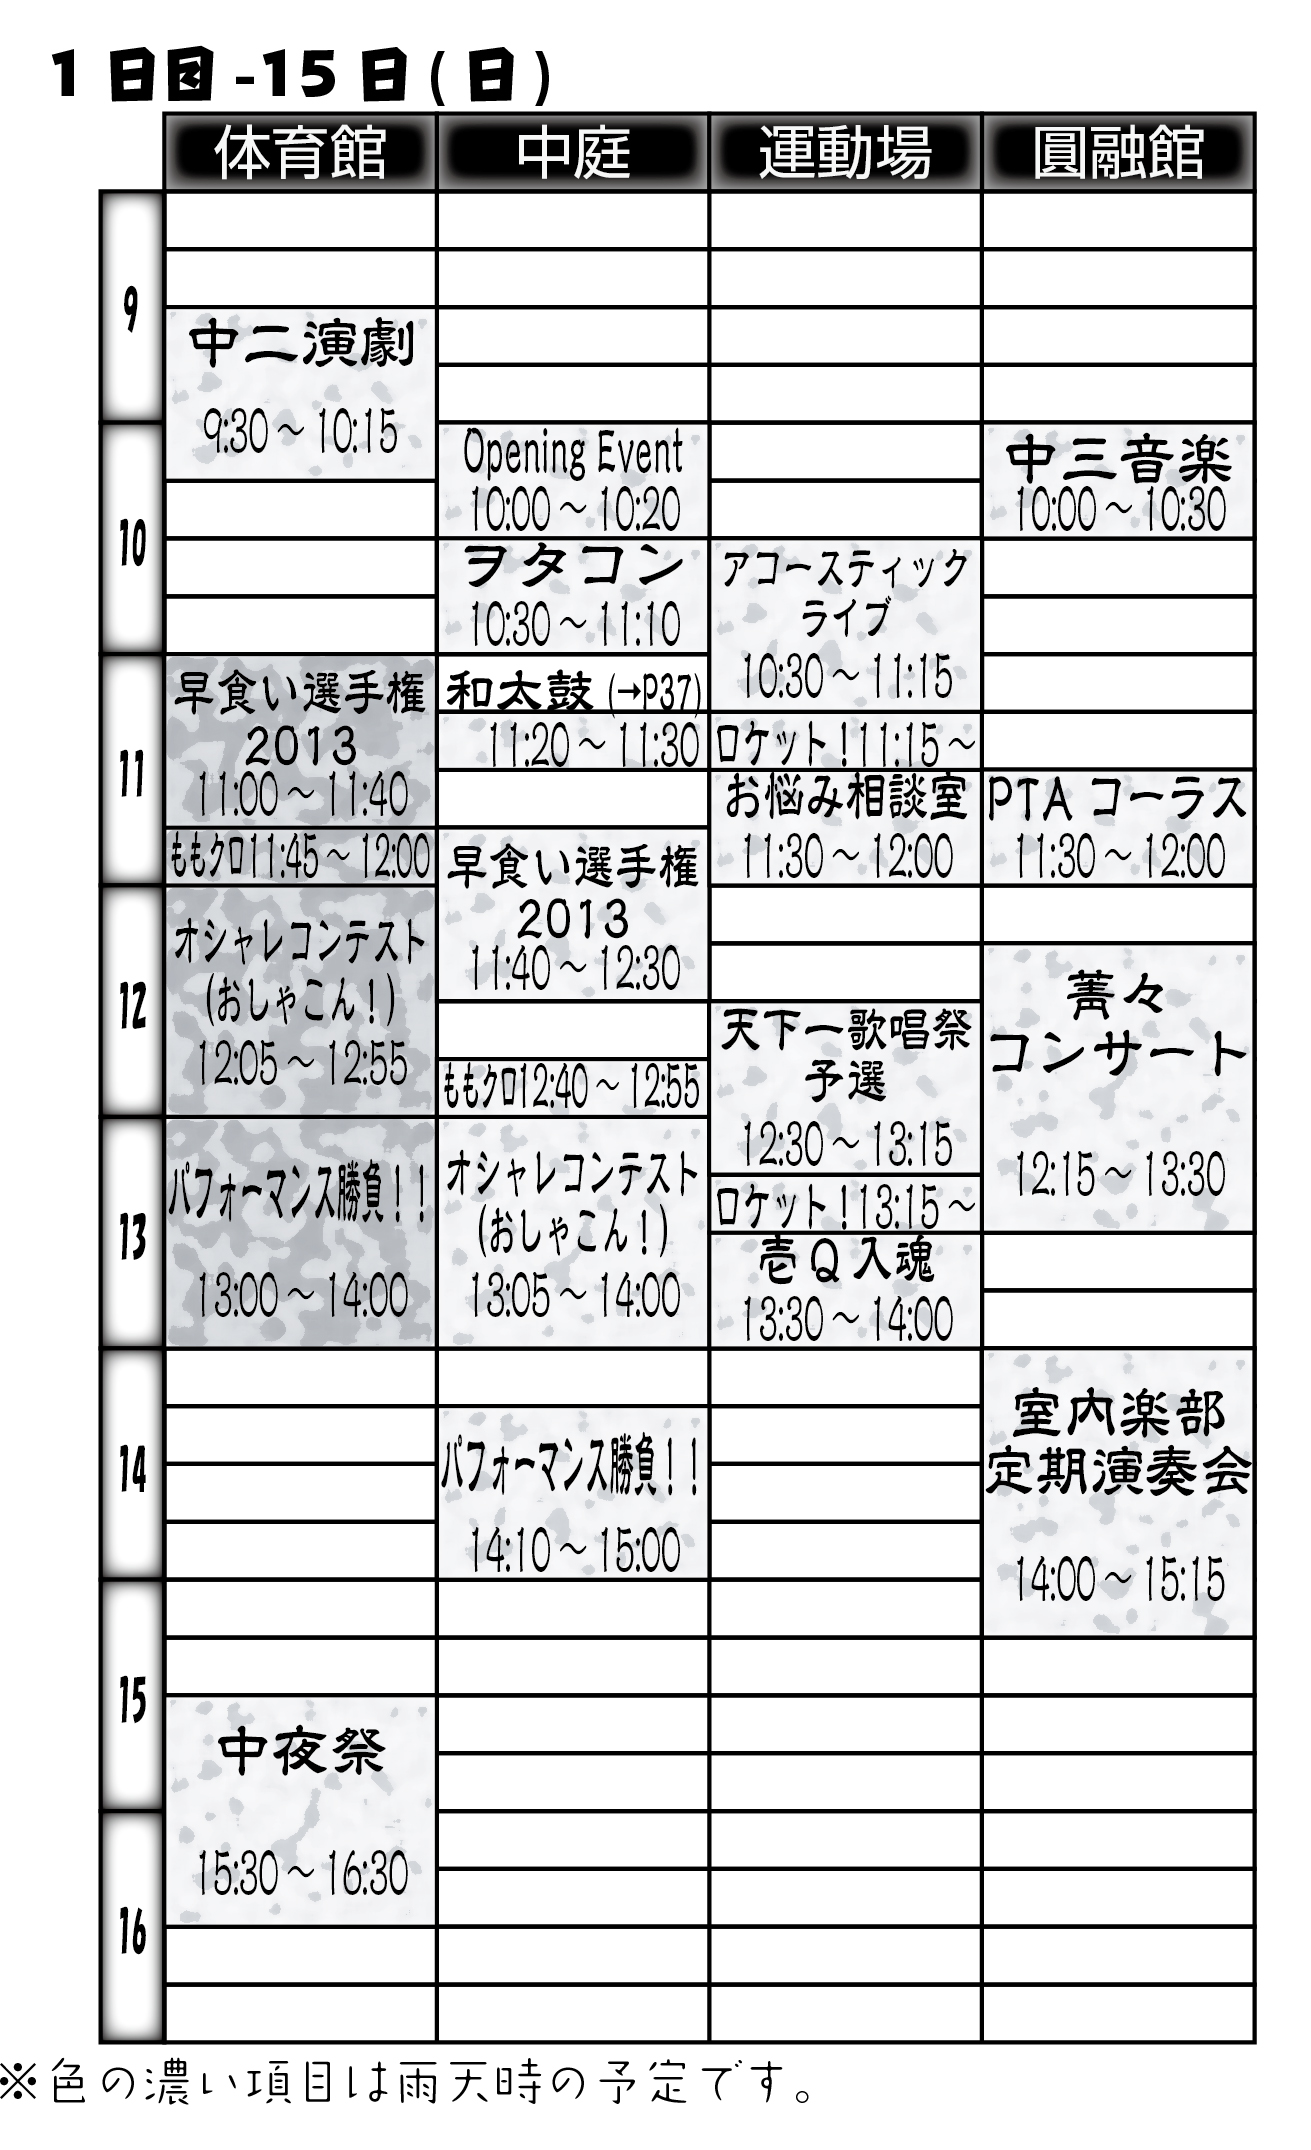 1日目-15日(日)
体育館
中庭
運動場
圓融館
9
10
11
12
13
14
15
16
中二演劇
9:30～10:15
早食い選手権
2013
11:00～11:40
ももクロ11:45～12:00
オシャレコンテスト
(おしゃこん!)
12:05～12:55
パフォーマンス勝負!!
13:00～14:00
中夜祭
15:30～16:30
Opening Event
10:00～10:20
ヲタコン
10:30～11:10
和太鼓(→P37)
11:20～11:30
早食い選手権
2013
11:40～12:30
ももクロ12:40～12:55
オシャレコンテスト
(おしゃこん!)
13:05～14:00
パフォーマンス勝負!!
14:10～15:00
アコースティック
ライブ
10:30～11:15
ロケット!11:15～
お悩み相談室
11:30～12:00
天下一歌唱祭
予選
12:30～13:15
ロケット!13:15～
壱Q入魂
13:30～14:00
中三音楽
10:00～10:30
PTAコーラス
11:30～12:00
菁々
コンサート
12:15～13:30
室内楽部
定期演奏会
14:00～15:15
※色の濃い項目は雨天時の予定です。